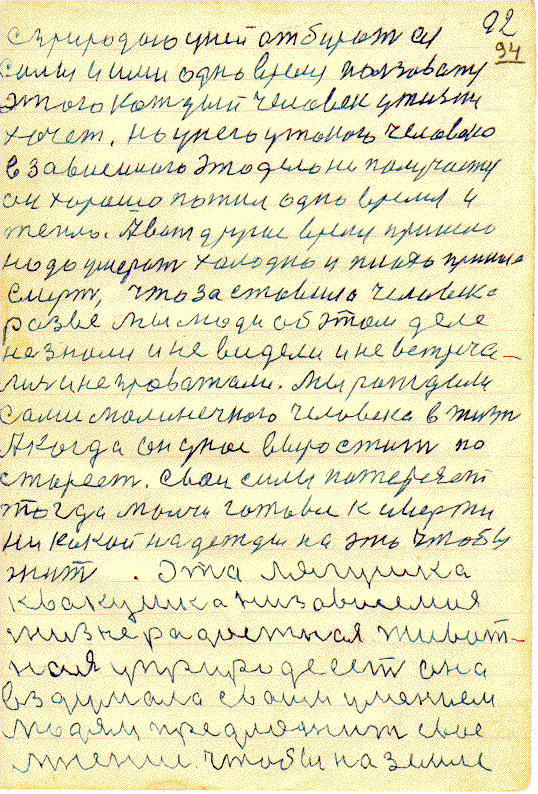 92
94
с природою у ней отбират ея
силы и ими одно время ползоватц
этого каждый человек у жизни
хочет. Но у него у такого человека
в зависимого это дело не получаетц
он хорошо пожил одно время и
тепло. А вот другое время пришло
надо умерат холодно и плохо пришла
смерт, что заставило человека
разве мы люди об этом деле
не знали и не видели и не встреча-
лис и не проважали. Мы рождали
сами малинечкого человека в жизн
А когда он у нас выростит по
стареет. Свои силы потерает
тогда молчи готовс к смерти
ни какой надежды на это чтобы
жит. Эта лягушка
квакушка низависемия
жизнерадостная живот-
ная у природе ест она
вздумала своим умением
людям предложит свое
мнение. чтобы на земле